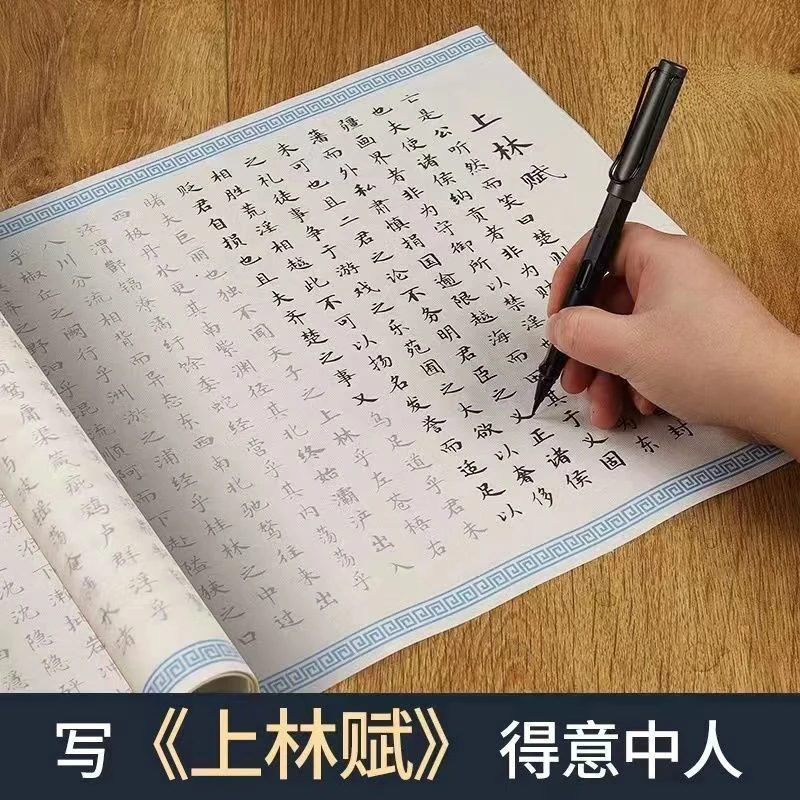 上林赋
亡是公听然而笑曰楚则
也夫使诸侯纳贡者非为财
封
疆画界者非为守御所以禁淫
为东
藩而外私肃慎捐国逾限越海而田其于义固
未可也且二君之论不务明君臣之义正诸侯
之礼徒事争于游戏之乐苑囿之大欲以奢侈
相胜荒淫相越此不可以扬名发誉而适足以
贬君自损也且夫齐楚之事又乌足道乎君未
睹夫巨丽也独不闻天子之上林乎左苍梧右
西极丹水更其南紫渊径其北终始灞浐出入
泾渭酆镐潦潏纡馀委蛇经营乎其内荡荡乎
八川分流相背而异态东西南北驰骛往来出
乎椒丘之阙行乎洲淤之浦经乎桂林之中过
之野
乎混流顺阿而下赴隘狭之口
庸渠箴疵鵁卢群浮乎
水渚
沈沈隐隐砰
写《上林赋》得意中人